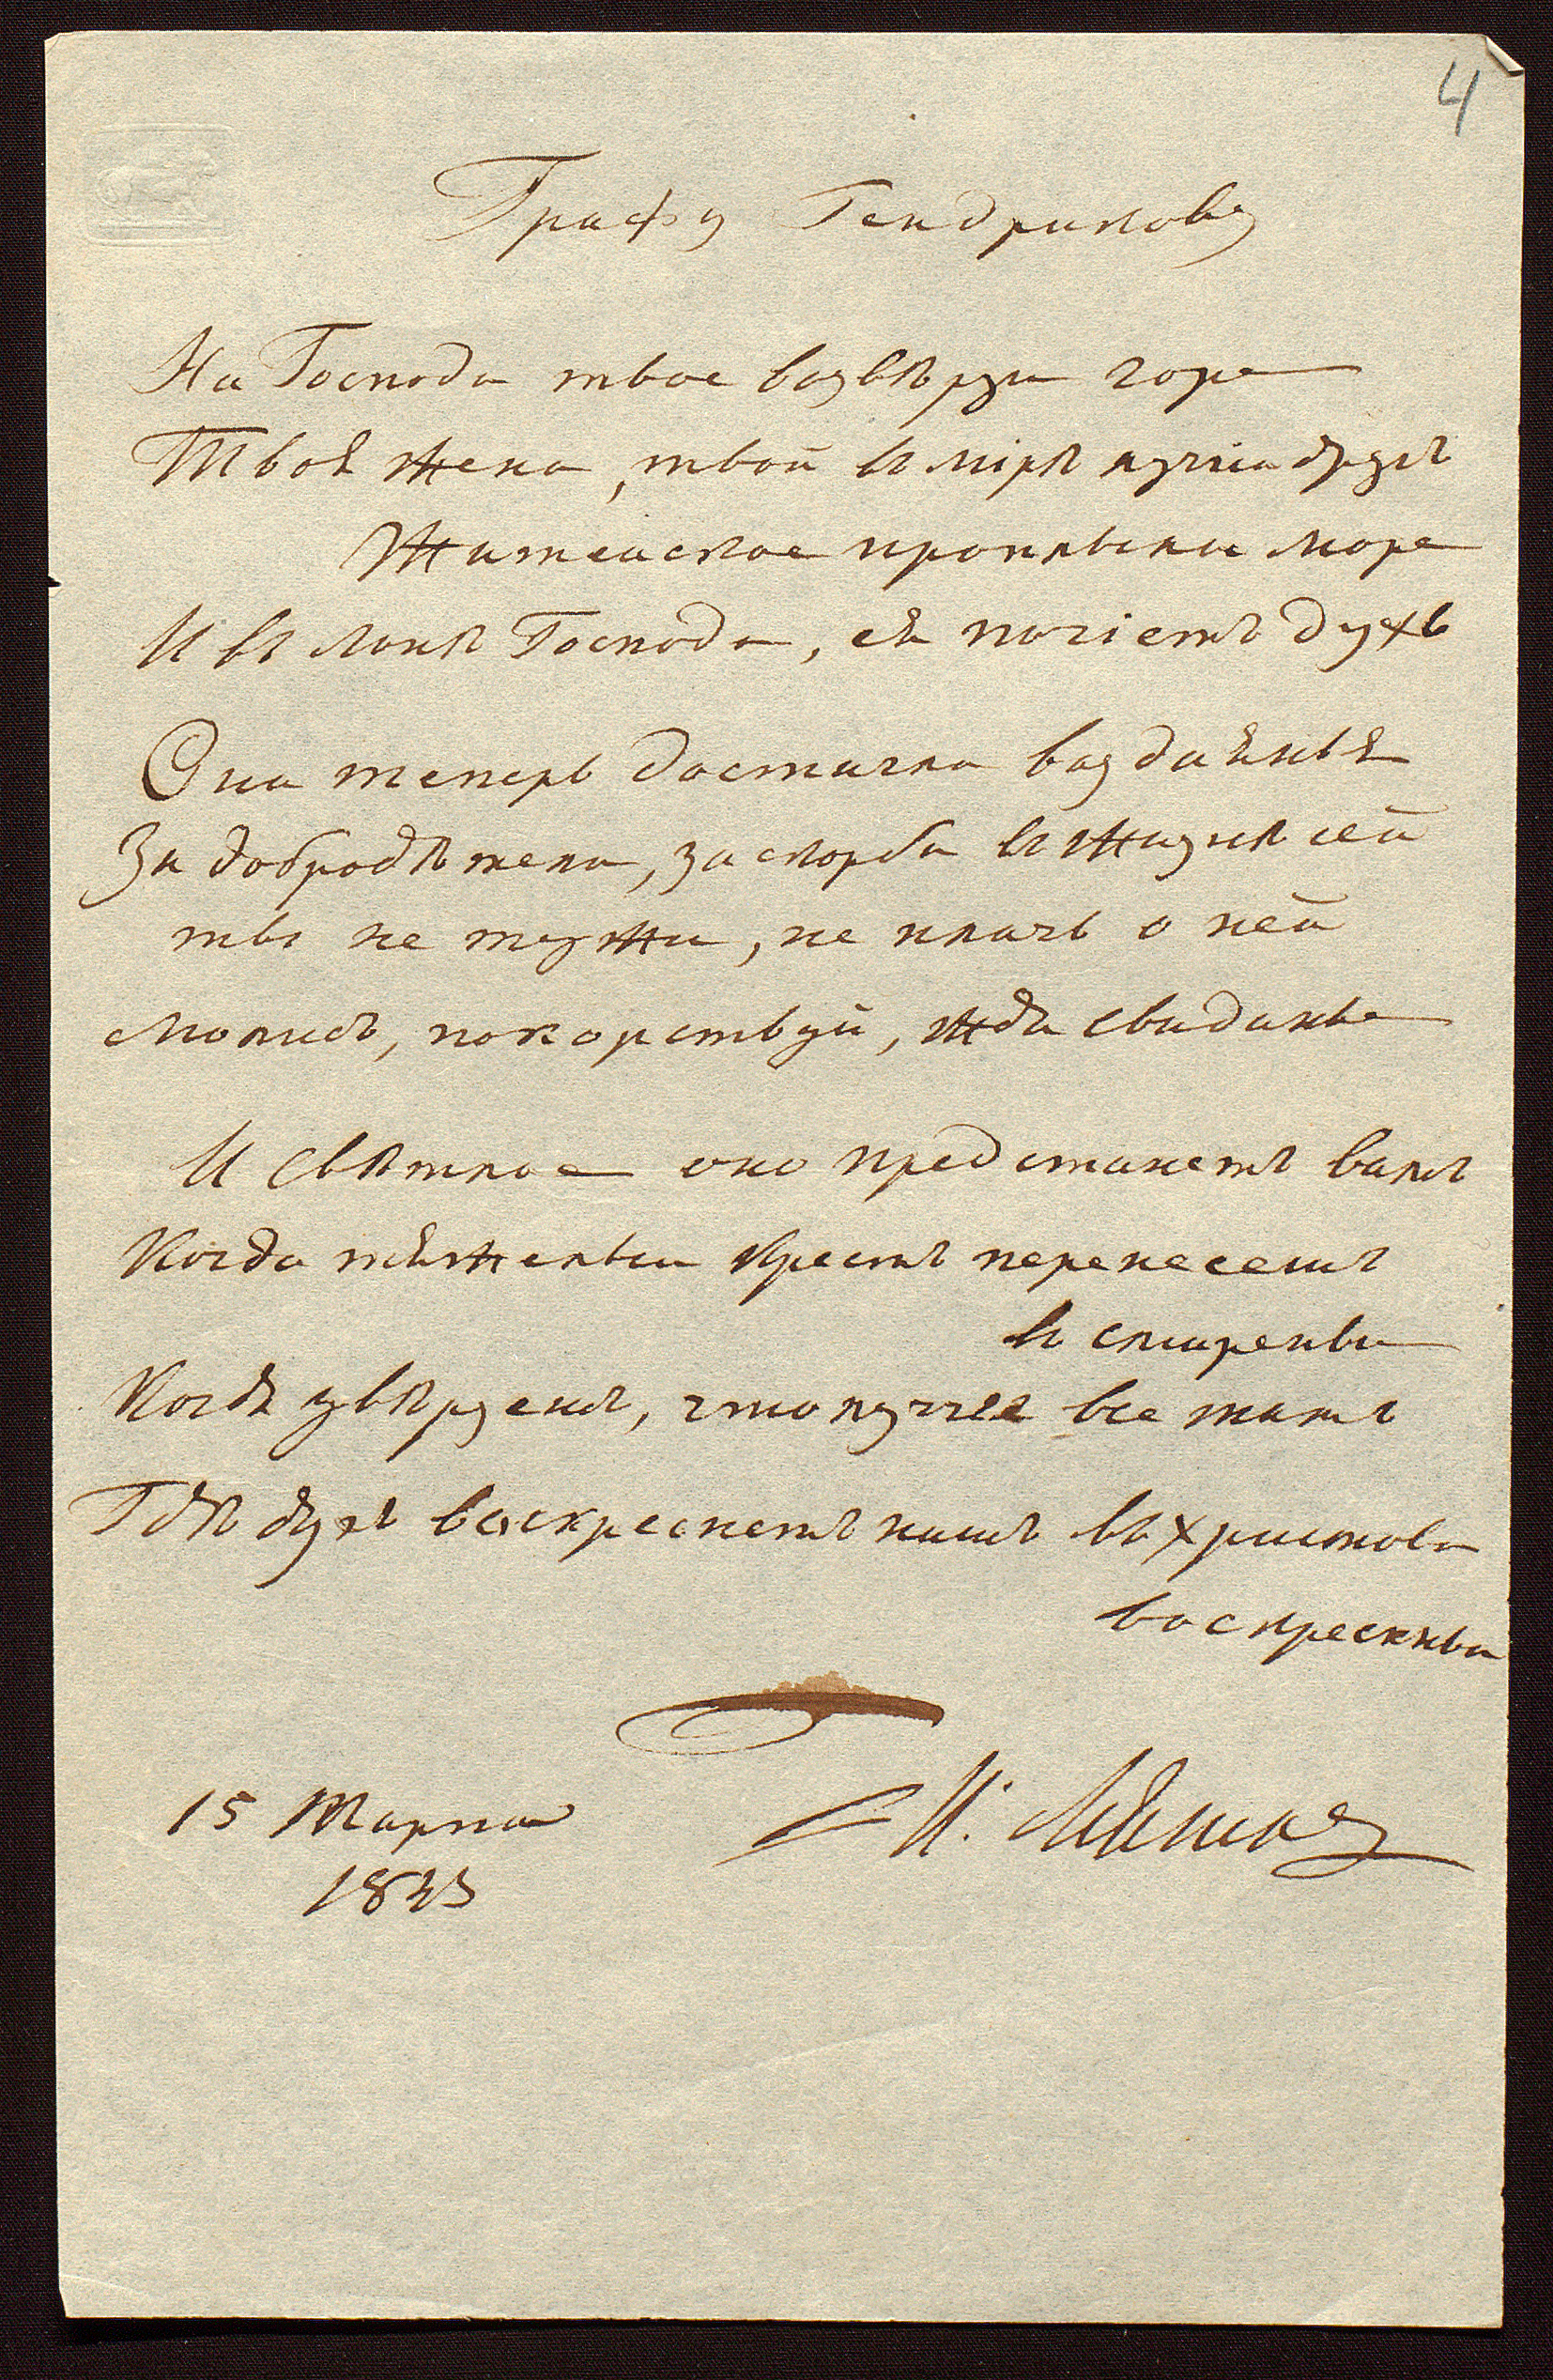 4
Графу Гендрикову
На Господа твое возвѣрзи горе
Твоя жена, твой въ мірѣ лучіи другъ
Житейское проплыли море
И въ лонѣ Господа, ея почіетъ духъ
Она теперь достигла воздаянья
За добродѣтели, за скорби въ жизнѣ сей
ты не тужи, не плачь о ней
Молись, покорствуй, жди свиданье
И свѣтлое оно предстанетъ вамъ
Когда тяжелыи Крестъ перенесешь
въ смиреньи
Когда увѣруешь, что лучшее все тамъ
Гдѣ духъ воскреснетъ нашъ въ христови
воскресеньи
15 Марта И.